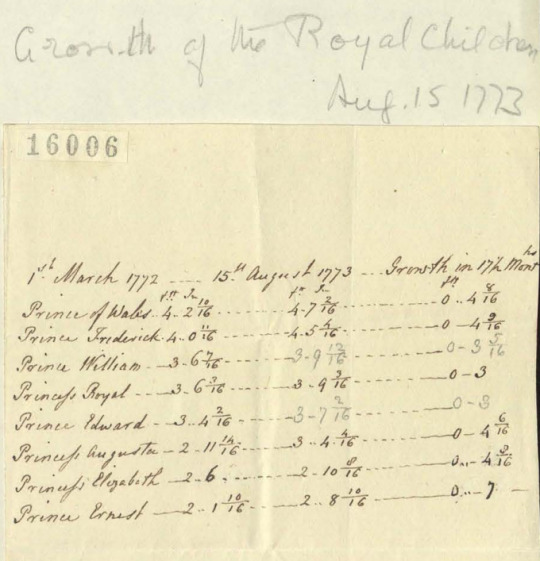 Growth of the Royal Children
Aug. 15 1773
16006
1st March 1772 ---- 15th August 1773 --- Growth in 17½ Months
ft In ft In ft In
Prince of Wales 4 - 2 10/16 ------- 4 - 7 2/16 ------- 0 - 4 8/16
Prince Frederick 4 - 0 11/16 ------- 4 - 5 4/16 ------- 0 - 4 9/16
Prince William - 3 - 6 7/16 ------- 3 - 9 12/16 ------- 0 - 3 5/16
Princess Royal - 3 - 6 3/16 ------- 3 - 9 3/16 ------- 0 - 3
Prince Edward - 3 - 4 2/16 ------- 3 - 7 2/16 ------- 0 - 3
Princess Augusta - 2 - 11 14/16 ------- 3 - 4 4/16 ------- 0 - 4 6/16
Princess Elizabeth - 2 - 6 ------- 2 - 10 8/16 ------- 0 - 4 8/16
Prince Ernest - 2 - 1 10/16 ------- 2 - 8 10/16 ------- 0 - 7 -